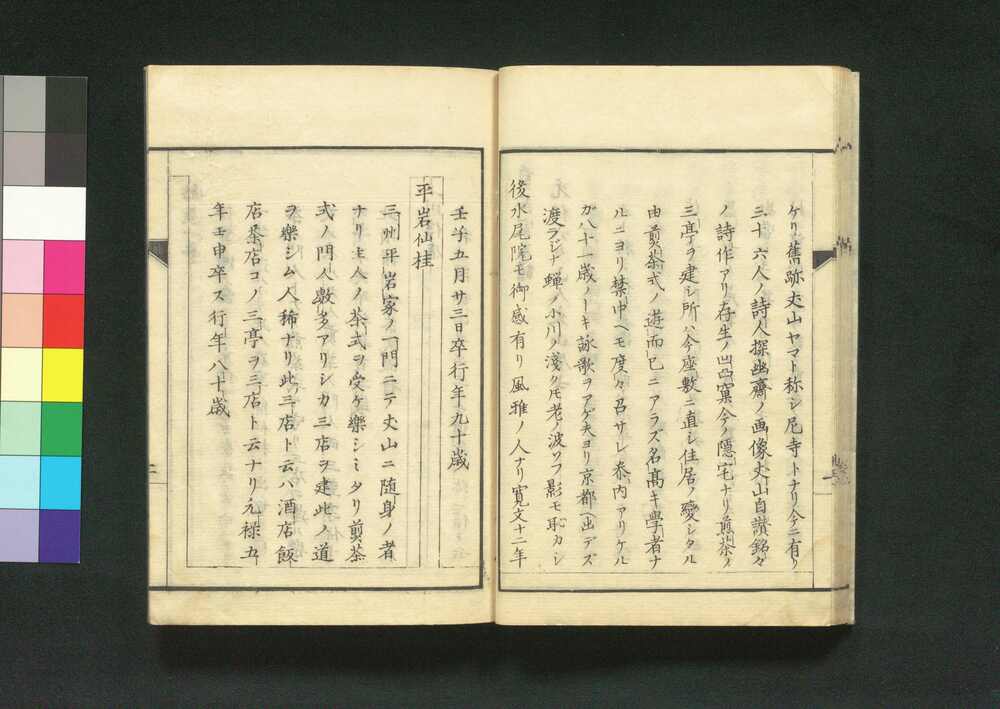 ケリ舊跡丈山ヤマト称シ尼寺トナリ今ニ有リ
三十六人ノ詩人探幽齋ノ画像丈山自讃銘々
ノ詩作アリ存生ノ凹凸窠今ノ隠宅ナリ煎茶ノ
三亭ヲ建シ所ハ今座敷ニ直シ住居ノ變シタル
由煎茶式ノ遊而已ニアラズ名髙キ學者ナ
ルニヨリ禁中ヘモ度々召サレ参内アリケル
ガ八十一歳ノトキ詠歌ヲアゲ夫ヨリ京都ヘ出デズ
渡ラジナ蝉ノ小川ノ淺クモ老ノ波ソフ影モ恥カシ
後水尾院モ御感有リ風雅ノ人ナリ寛文十二年
壬子五月廿三日卒行年九十歳
平岩仙桂
三州平岩家ノ一門ニテ丈山ニ随身ノ者
ナリ主人ノ茶式ヲ受ケ樂シミタリ煎茶
式ノ門人數多アリシカ三店ヲ建此ノ道
ヲ樂シム人稀ナリ此三店ト云ハ酒店飯
店茶店コノ三亭ヲ三店ト云ナリ元禄五
年壬申卒ス行年八十歳